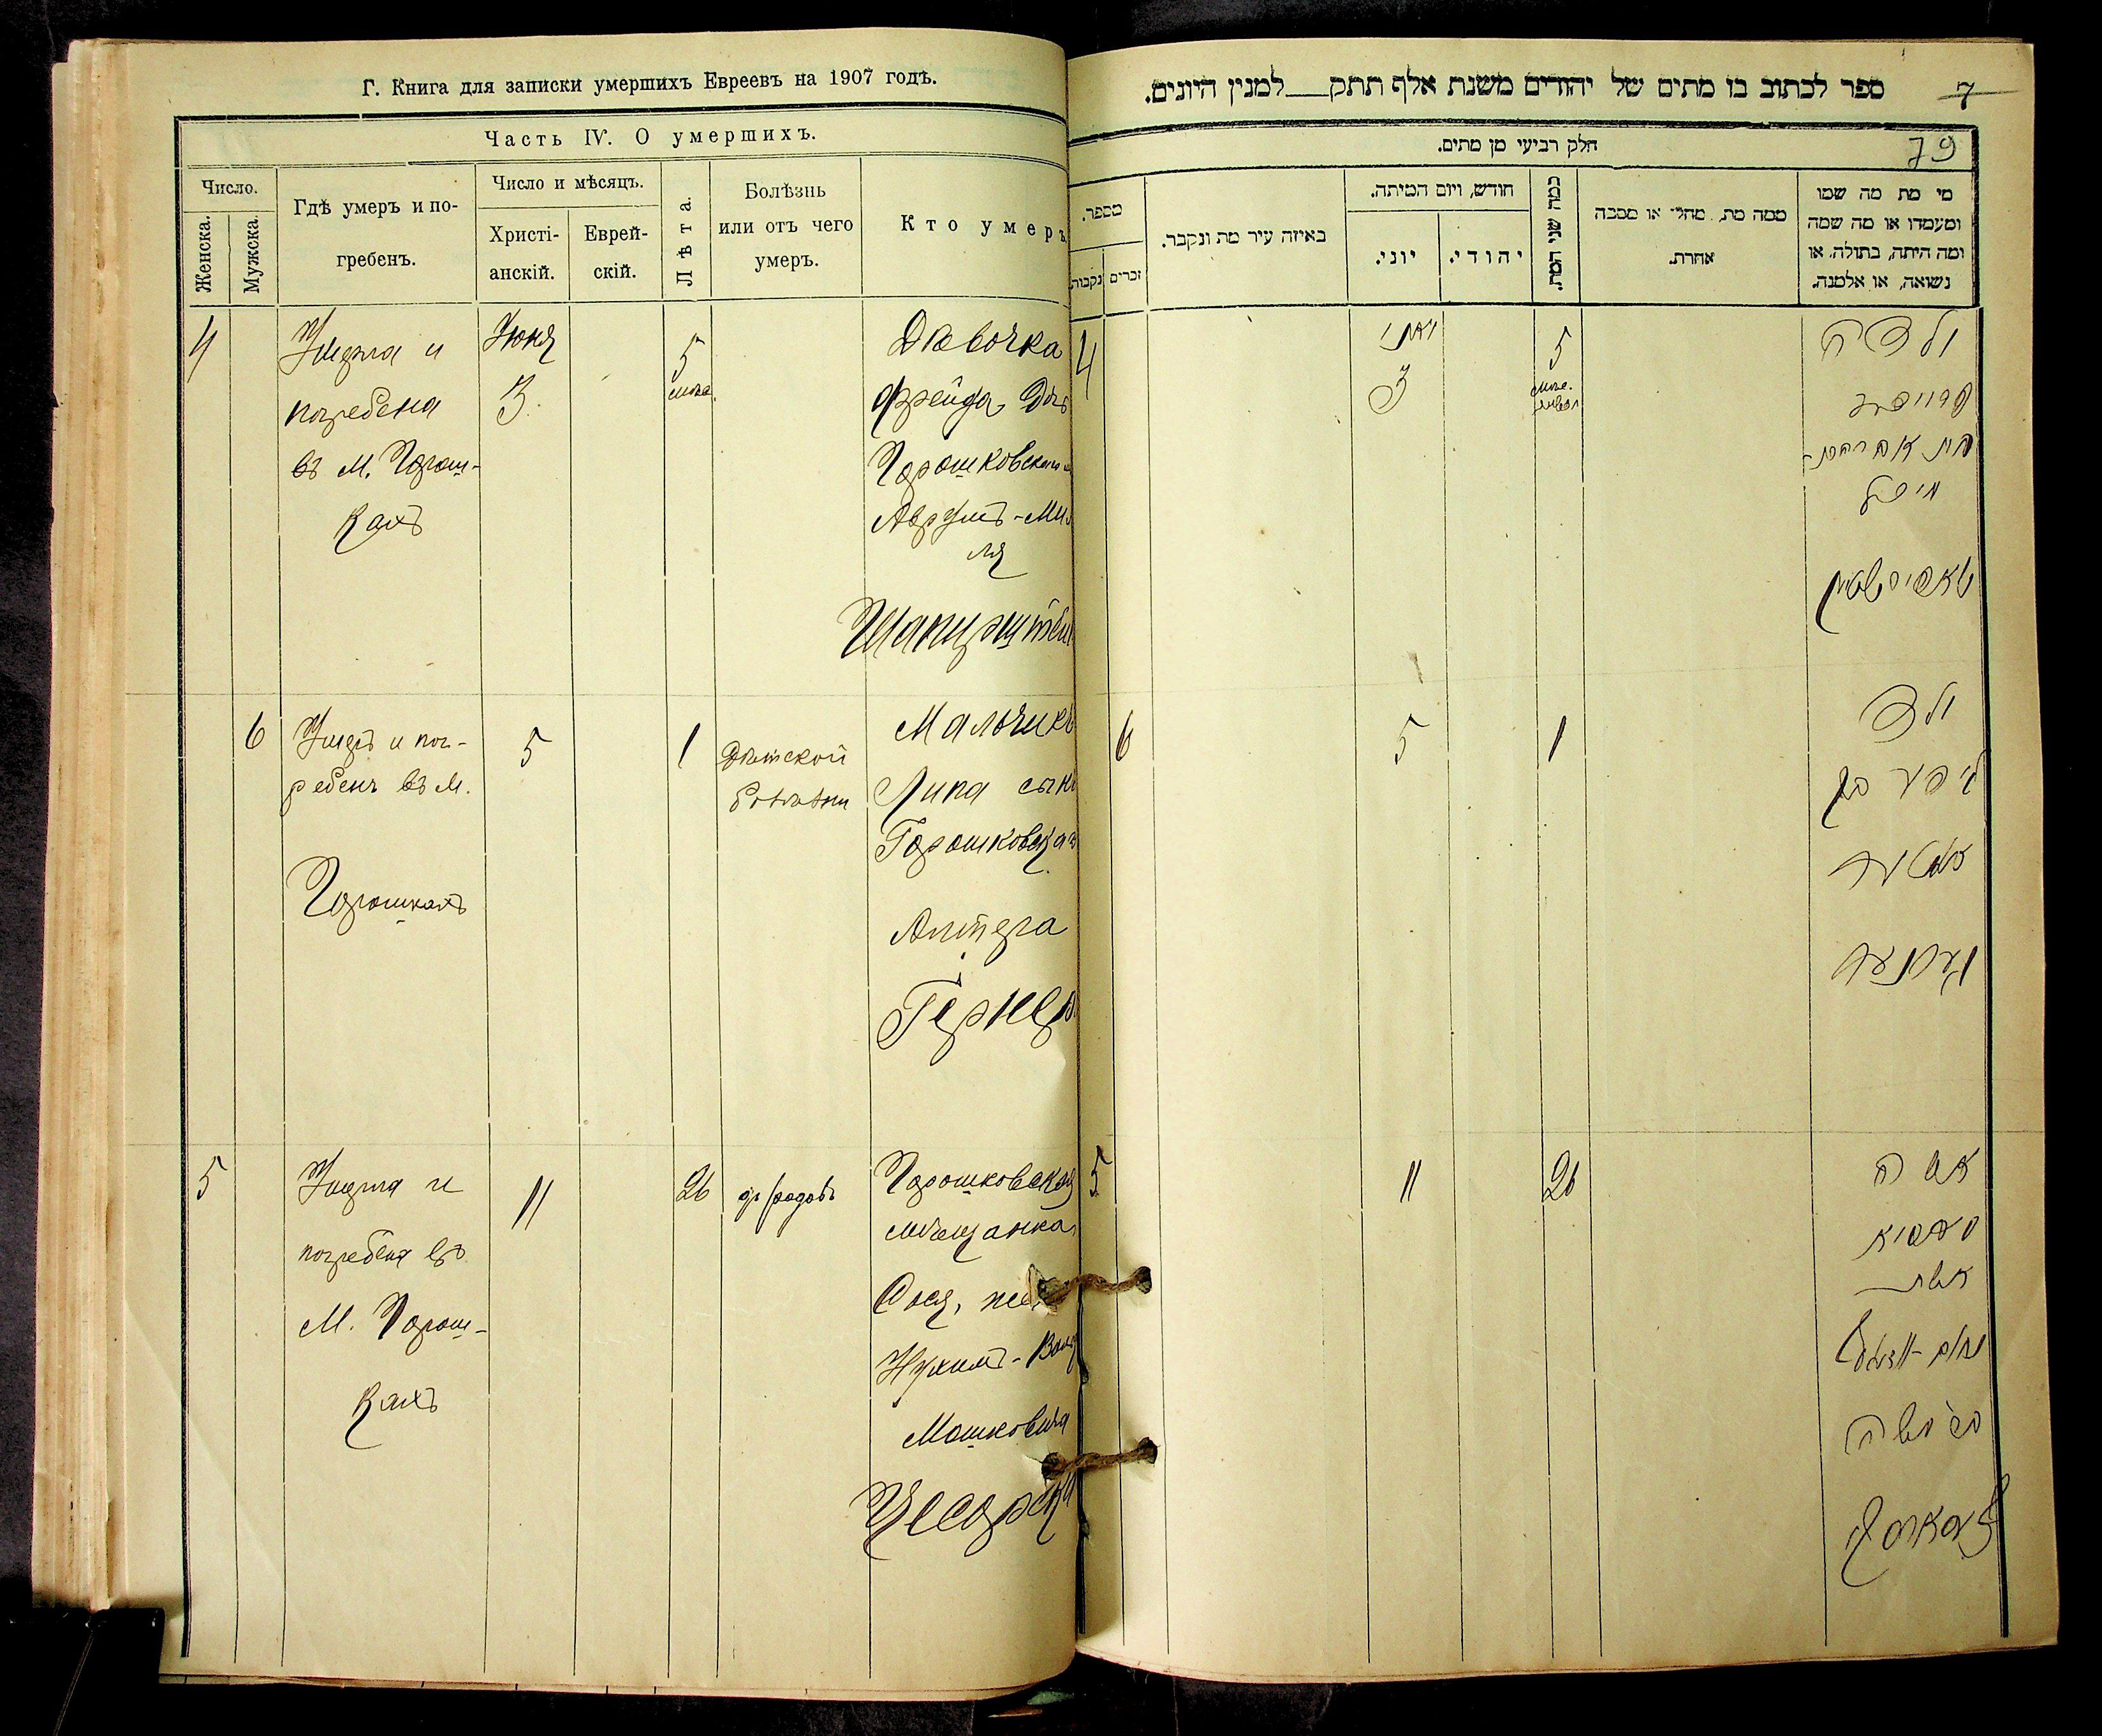 Г. Книга для записки умершихъ Евреевъ на 1907 годѣ.
Часть IV. О умершихъ.
Число.
Женска.
Мужска.
Гдѣ умеръ и по-
гребенъ.
Число и мѣсяцъ.
Христі-
анскій.
Еврей-
скій.
Лѣта.
Болѣзнь
или отъ чего
умеръ.
Кто умеръ
4
Умерла и
погребена
въ М. Горош-
кахъ
Іюня
3
5
мѣс.
Дѣвочка
Фрейда дочь
Горошковскаго
Аврумъ-Ми
ля
Шапирштейн
6
Умеръ и пог-
ребенъ въ М.
Горошкахъ
5
1
Дѣтской
болѣзни
Мальчикъ
Липа сынъ
Горошковскаго
Алтера
Гернера
5
Умерла и
погребена въ
М. Горош-
кахъ
11
26
родовъ
Горошковская
мѣщанка
Сося, жена
Нухимъ-Вол
Мошковича
Цесарска
ספר לכתוב בו מתים של יהודים משנת אלף תתק__למנין היונים.
7
79
חלק רביעי מן מתים.
מספר.
נקבות
זכרים
באיזה עיר מת ונקבר.
חודש, ויום המיתה.
יוני.
יהודי.
כמה שני המת.
ממה מת, מחלי או מסבה
אחרת.
מי מת מה שמו
ומעמדו או מה שמה
ומה היתה, בתולה, או
נשואה, או אלמנה.
4
יוני
3
5
ילדה
פריידע
בת אברהם-
מיכל
שאפירשטיין
6
5
1
ילד
ליפא בן
אלטער
גערנער
5
11
26
אשה
סאסיא
אשת
נחום-וועלוול
בר' משה
צעסארסקי